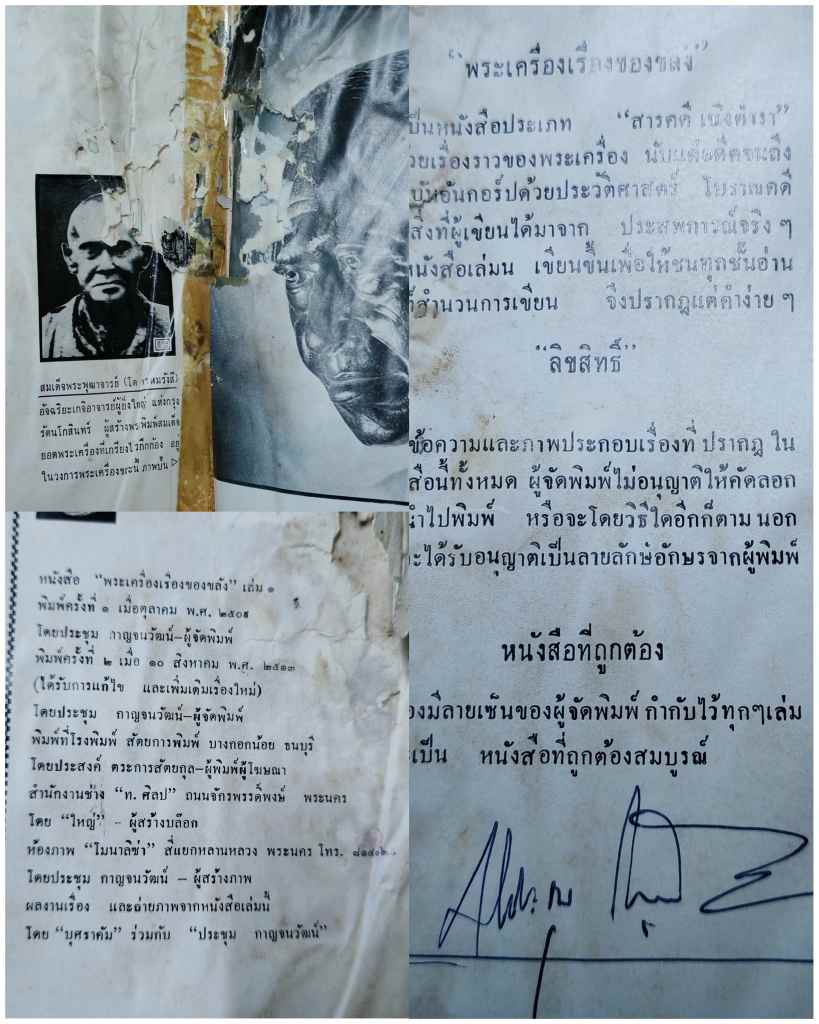 สมเด็จพระพุฒาจารย์ (โต
อัจฉริยะเกจิอาจารย์ผู้ยิ่งใหญ่ แห่งกรุง
รัตนโกสินทร์ ผู้สร้างพระพิมพ์สมเด็จ
ยอดพระเครื่องที่เกรียงไรกึกก้อง อยู่
ในวงการพระเครื่องขณะนี้
หนังสือ “พระเครื่องเรื่องของขลัง” เล่ม ๑
พิมพ์ครั้งที่ ๑ เมื่อตุลาคม พ.ศ. ๒๕๐๙
โดยประชุม กาญจนวัฒน์–ผู้จัดพิมพ์
พิมพ์ครั้งที่ ๒ เมื่อ ๑๐ สิงหาคม พ.ศ. ๒๕๑๓
(ได้รับการแก้ไข และเพิ่มเติมเรื่องใหม่)
โดยประชุม กาญจนวัฒน์–ผู้จัดพิมพ์
พิมพ์ที่โรงพิมพ์ สัตยการพิมพ์ บางกอกน้อย ธนบุรี
โดยประสงค์ ตระการสัตยกุล–ผู้พิมพ์ผู้โฆษณา
สำนักงานช่าง “ท. ศิลป” ถนนจักรพรรดิ์พงษ์ พระนคร
โดย “ใหญ่” – ผู้สร้างบล๊อก
ห้องภาพ “โมนาลิซ่า” สี่แยกหลานหลวง พระนคร โทร.
โดยประชุม กาญจนวัฒน์ – ผู้สร้างภาพ
ผลงานเรื่อง และถ่ายภาพจากหนังสือเล่มนี้
โดย “บุศราคัม” ร่วมกับ “ประชุม กาญจนวัฒน์”
“พระเครื่องเรื่องของขลัง”
เป็นหนังสือประเภท “สารคดี เชิงตำรา”
ด้วยเรื่องราวของพระเครื่อง นับแต่อดีตจนถึง
บันอันกอร์ปด้วยประวัติศาสตร์ โบราณคดี
สิ่งที่ผู้เขียนได้มาจาก ประสพการณ์จริง ๆ
หนังสือเล่มน เขียนขึ้นเพื่อให้ชนทุกชั้นอ่าน
สำนวนการเขียน จึงปรากฏแต่คำง่าย ๆ
“ลิขสิทธิ์”
ข้อความและภาพประกอบเรื่องที่ ปรากฏ ใน
สือนี้ทั้งหมด ผู้จัดพิมพ์ไม่อนุญาติให้คัดลอก
นำไปพิมพ์ หรือจะโดยวิธีใดอีกก็ตาม นอก
จะได้รับอนุญาติเป็นลายลักษ์อักษรจากผู้พิมพ์
หนังสือที่ถูกต้อง
องมีลายเซ็นของผู้จัดพิมพ์ กำกับไว้ทุกๆเล่ม
ะเป็น หนังสือที่ถูกต้องสมบูรณ์